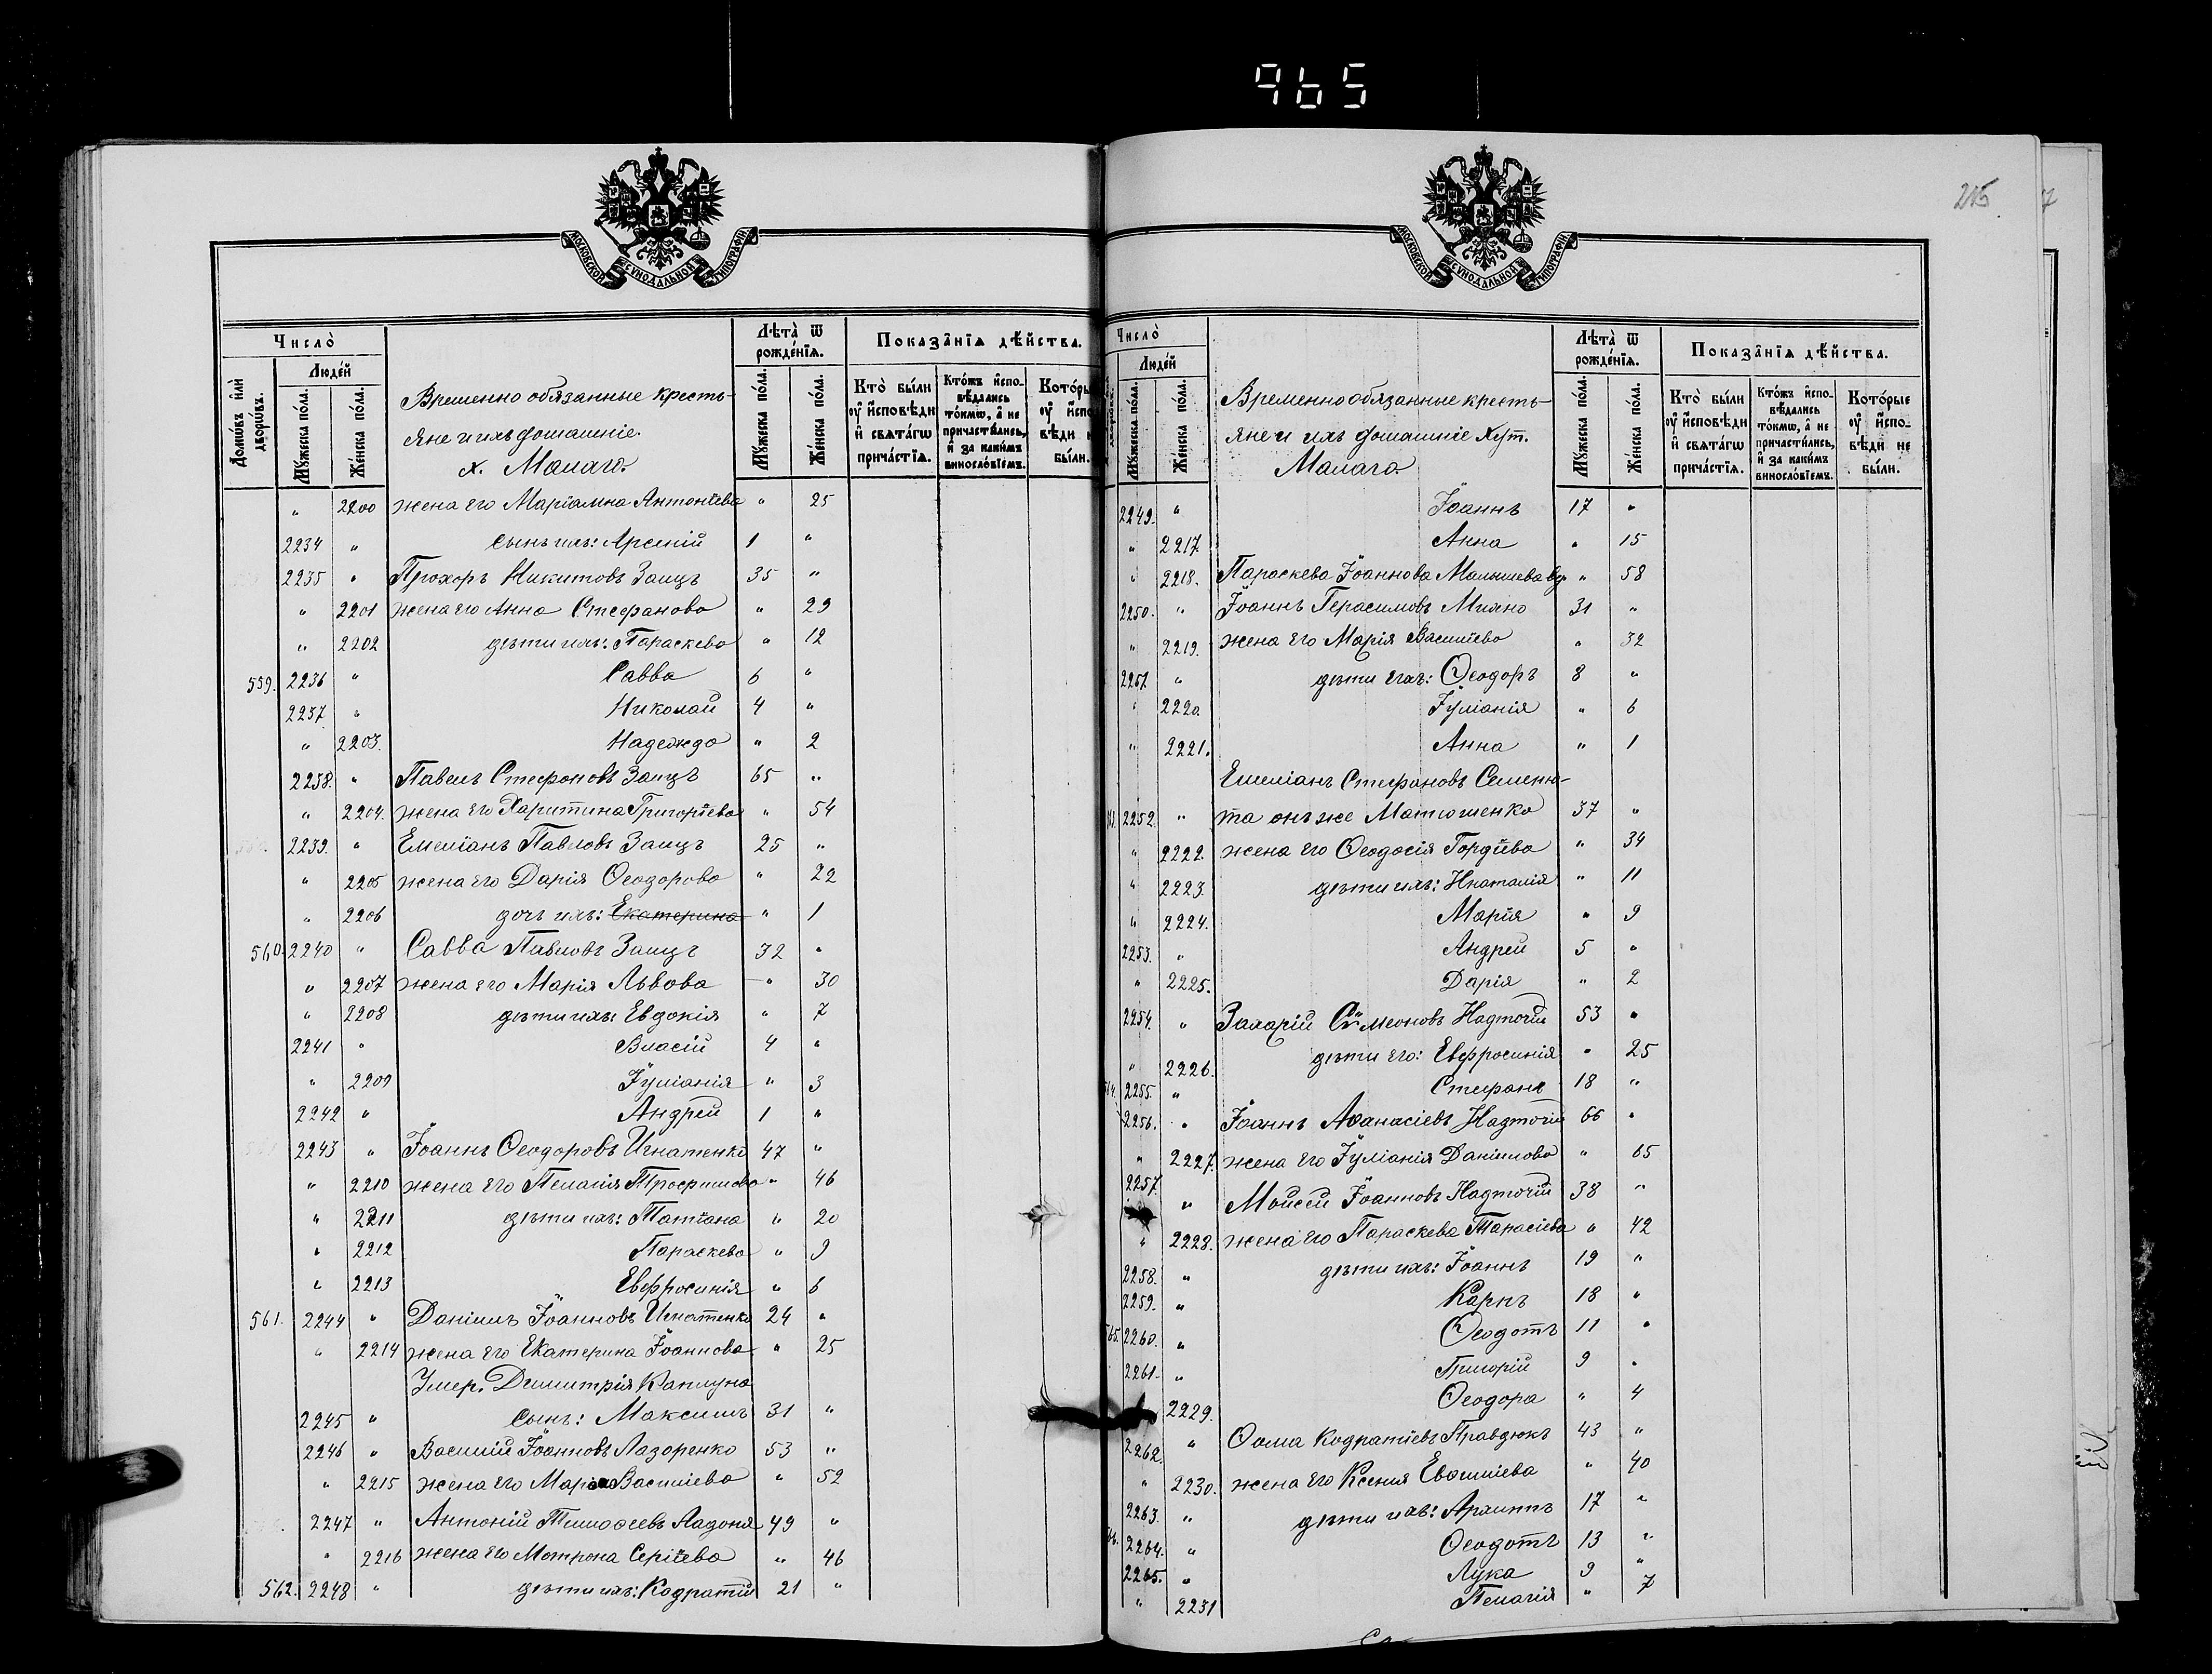 965
215
МОСКОВСКОЙ СѴНОДАЛЬНОЙ ТИПОГРАФІИ
Число̀
Домѡ́въ и҆лѝ дворѡ́въ.
Люде́й
Мꙋ́жеска по́ла.
Же́нска по́ла.
Временно обязанные кресть-
яне и ихъ домашніе.
х. Малаго.
Лѣта̀ ѿ рожде́нїѧ.
Мꙋ́жеска по́ла.
Же́нска по́ла.
Показа̂нїѧ дѣ́йства.
Кто̀ бы́ли ᲂу҆ и҆сповѣ́ди и҆ свѧта́гѡ прича́стїѧ.
Кто́жъ и҆спо-вѣ́дались то́кмѡ, а҆ не причасти́лись, и҆ за каки́мъ винослѡ́вїемъ.
" 2200 жена его Маріамна Антоніева " 25
2234 " сынъ ихъ: Арсеній 1 "
2235 " Прохоръ Никитовъ Заицъ 35 "
" 2201 жена его Анна Стефанова " 29
" 2202 дѣти ихъ: Параскева " 12
559. 2236 " Савва 6 "
2237 " Николай 4 "
" 2203. Надежда " 2
2238. " Павелъ Стефановъ Заицъ 65 "
" 2204. жена его Харитина Григоріева " 54
2239. " Емеліанъ Павловъ Заицъ 25 "
" 2205 жена его Дарія Ѳеодорова " 22
" 2206 дочь ихъ: Екатерина " 1
560. 2240 " Савва Павловъ Заицъ 32 "
" 2207 жена его Марія Львова " 30
" 2208 дѣти ихъ: Евдокія " 7
2241 " Власій 4 "
" 2209 Іуліанія " 3
2242 " Андрей 1 "
2243 " Іоаннъ Ѳеодоровъ Игнатенко 47 "
" 2210 жена его Пелагія Трофимова " 46
" 2211 дѣти ихъ: Татіана " 20
" 2212 Параскева " 9
" 2213 Евфросинія " 6
561. 2244 " Даніилъ Іоанновъ Игнатенко 24 "
" 2214 жена его Екатерина Іоаннова " 25
Умер. Димитрія Каплуна
2245 " сынъ: Максимъ 31 "
2246 " Василій Іоанновъ Лазоренко 53 "
" 2215 жена его Марія Василіева " 52
2247 " Антоній Тимоѳеевъ Ладоня 49 "
" 2216 жена его Мотрона Сергіева " 46
562. 2248 " дѣти ихъ: Кодратій 21 "
МОСКОВСКОЙ СѴНОДАЛЬНОЙ ТИПОГРАФІИ
Число̀
Люде́й
Мꙋ́жеска по́ла.
Же́нска по́ла.
Временно обязанные кресть-
яне и ихъ домашніе хут.
Малаго
Лѣта̀ ѿ рожде́нїѧ.
Мꙋ́жеска по́ла.
Же́нска по́ла.
Показа̂нїѧ дѣ́йства.
Кто̀ бы́ли ᲂу҆ и҆сповѣ́ди и҆ свѧта́гѡ прича́стїѧ.
Кто́жъ и҆спо-вѣ́дались то́кмѡ, а҆ не причасти́лись, и҆ за каки́мъ винослѡ́вїемъ.
Кото́рые ᲂу҆ и҆спо-вѣ́ди не бы́ли.
2249. " Іоаннъ 17 "
" 2217. Анна " 15
" 2218. Параскева Іоаннова Малышева вд. " 58
2250. " Іоаннъ Герасимовъ Мияно 31 "
" 2219. жена его Марія Василіева " 32
2251. " дѣти ихъ: Ѳеодоръ 8 "
" 2220. Іуліанія " 6
" 2221. Анна " 1
Емеліанъ Стефановъ Семеню-
2252. " та онъ же Матюшенко 37 "
" 2222. жена его Ѳеодосія Гордіева " 34
" 2223. дѣти ихъ: Наталія " 11
" 2224. Марія " 9
2253. " Андрей 5 "
" 2225. Дарія " 2
2254. " Захарій Сѵмеоновъ Надточій 53 "
" 2226. дѣти его: Евфросинія " 25
2255. " Стефанъ 18 "
2256. " Іоаннъ Аѳанасіевъ Надточій 66 "
" 2227. жена его Іуліанія Даніилова " 65
2257. " Моисей Іоанновъ Надточій 38 "
" 2228. жена его Параскева Тарасіева " 42
2258. " дѣти ихъ: Іоаннъ 19 "
2259. " Карпъ 18 "
565. 2260. " Ѳеодотъ 11 "
2261. " Григорій 9 "
2229. Ѳеодора " 4
2262. " Ѳома Кодратіевъ Правдюкъ 43 "
" 2230. жена его Ксенія Евсигніева " 40
2263. " дѣти ихъ: Архиппъ 17 "
2264. " Ѳеодотъ 13 "
2265. " Лука 9 "
" 2231 Пелагія " 7